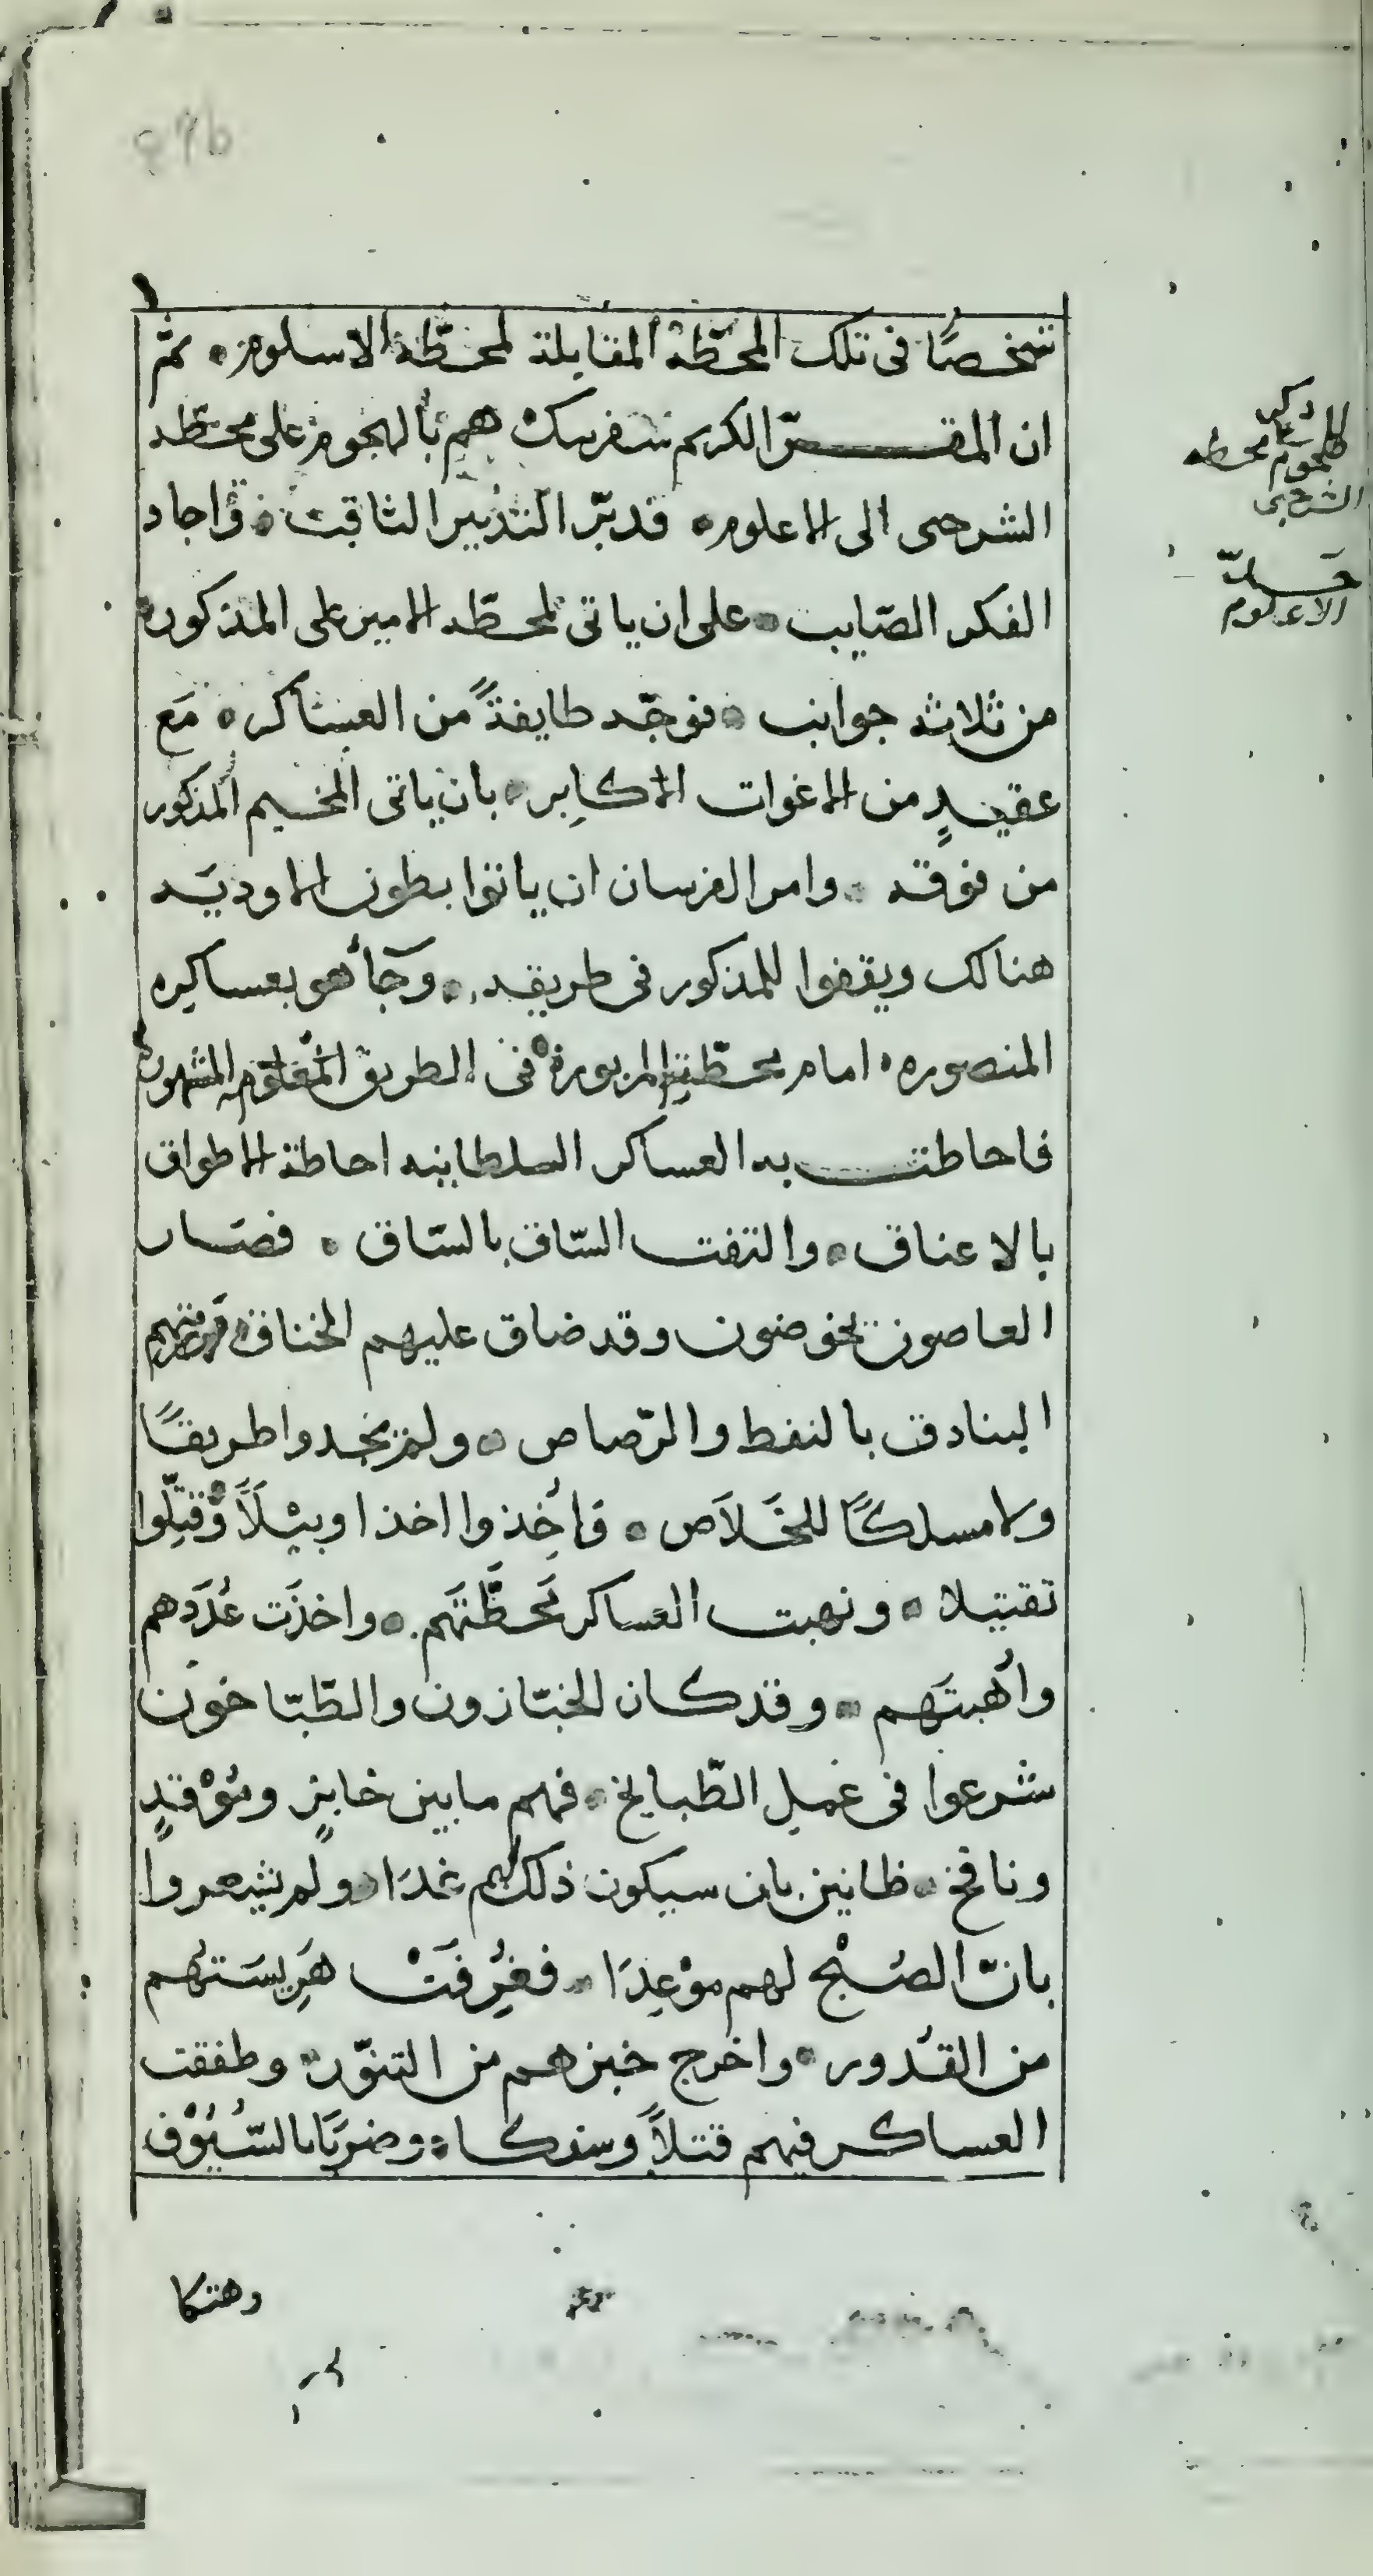 شخصًا فى تلك المحطّه المقابلة لمحطّة الاسلوم • ثم
ان المقرّ الكريم سفر بيك هم بالهجوم على محطه
الشرجى الى الاعلوم • فدبّر التدبير الثاقب • واجاد
الفكر الصّايب • على ان ياتى لمحطه الامير على المذكوره
من ثلاث جوانب • فوجّه طايفةً من العساكر • مَع
عقيدٍ من الاغوات الاكابِر • بان ياتى المخيم المذكور
من فوقه • وامر الفرسان ان ياتوا بطون الاوديَه
هنالك ويقفوا للمذكور فى طريقه • وجَأ هو بعساكره
المنصوره • امام محطّتِه المزبورة فى الطريق المعلومه المشهوره
فاحاطت به العساكر السلطانيه احاطة الاطواق
بالاعناق • والتفت السّاق بالسّاق • فصَار
العاصون يخوضون وقد ضاق عليهم الخناق
البنادق بالنفط والرّصاص • ولم يجدوا طريقًا
ولا مسلكًا للخَلاَص • فاُخِذوا اخذا وبيْلاً وقتِّلوا
تقتيلا • ونهبت العساكر مَحطَّتَهم • واخذَت عُدَدهم
واُهبتَهم • وقد كان الخبّازون والطّبّاخون
شرعوا فى عَمل الطّبايخ • فهم مابين خابزٍ ومُوْقدٍ
ونافخ • ظانين بان سيكون ذلك لهم غدَا • ولم يشعروا
بانّ الصُبْح لهم موْعِدَا • فغُرِفَتْ هَرِيسَتهُم
من القدُور • واخرج خبزهم من التنّور • وطفقت
العساكر فيهم قتلاً وسفكا • وضربًا بالسّيُوْف
وهتكا
ذكر
الهجوم على محطه
الشرجى
الاعلوم